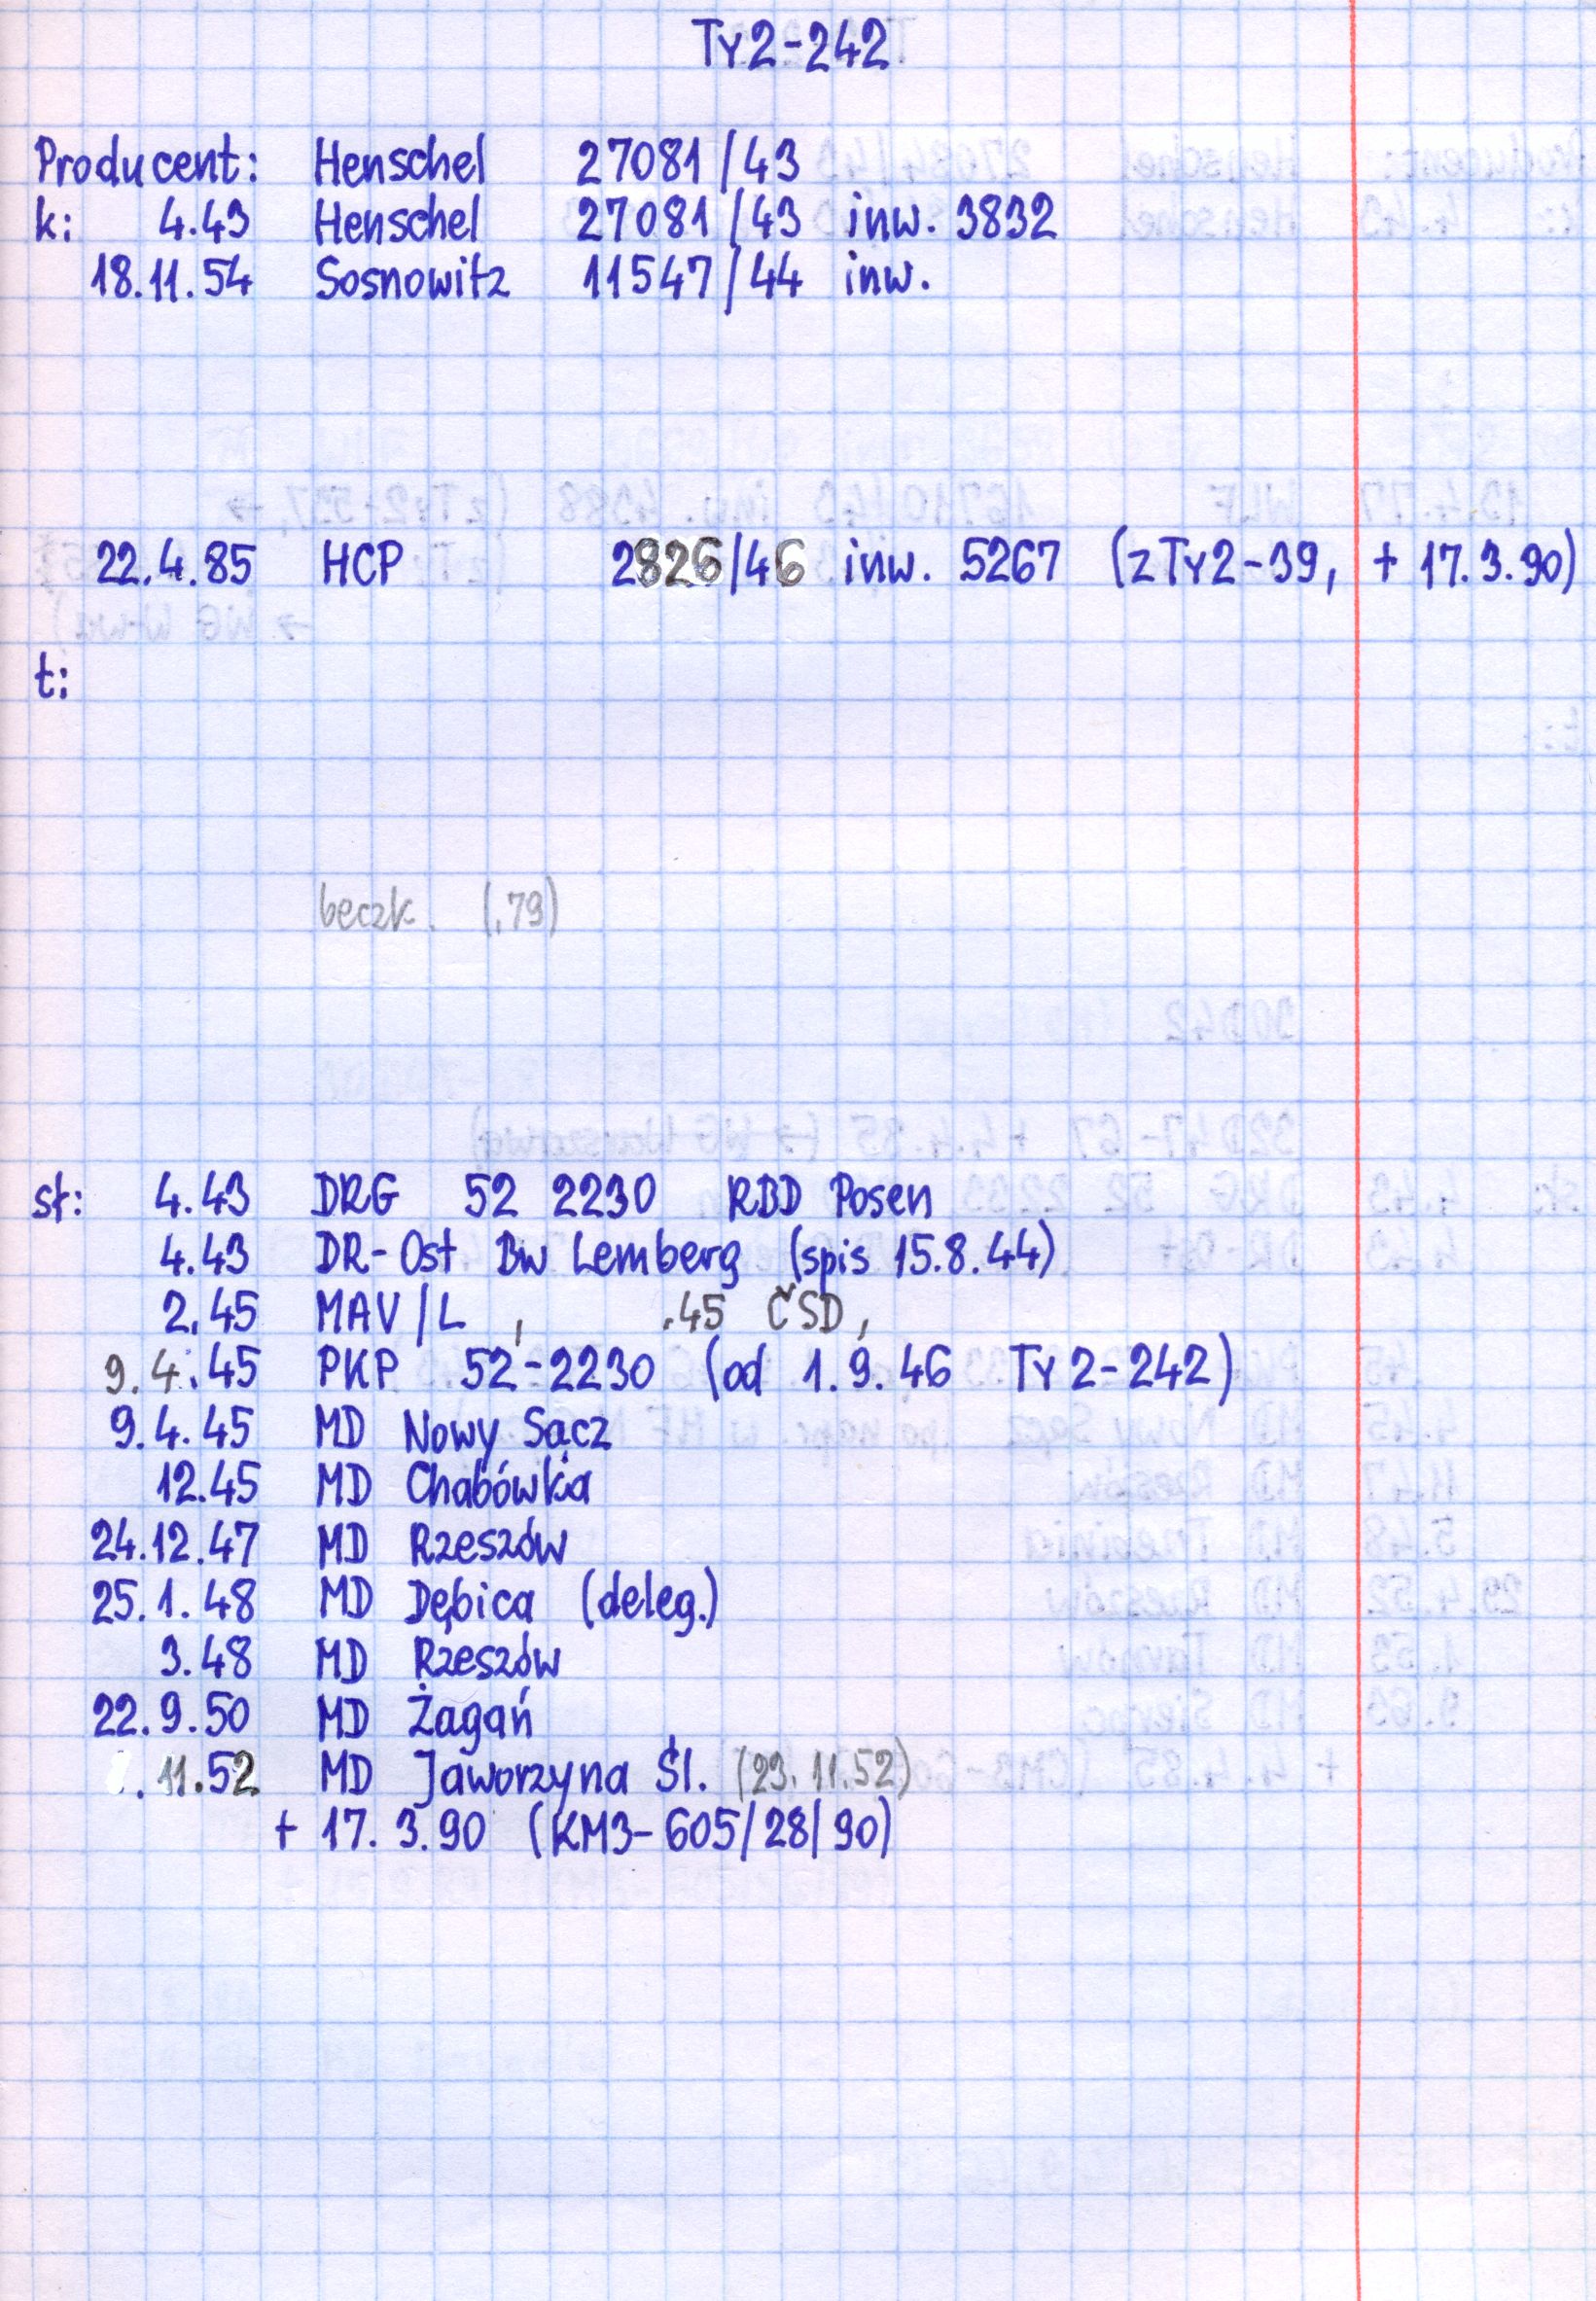 Ty2-242
Producent: Henschel 27081/43
k: 4.43 Henschel 27081/43 inw. 3832
18.11.54 Sosnowitz 11547/44 inw.
22.4.85 HCP 2826/46 inw. 5267 (z Ty2-39, + 17.3.90)
t:
beczk. (.79)
st: 4.43 DRG 52 2230 RBD Posen
4.43 DR-Ost Bw Lemberg (spis 15.8.44)
2.45 MAV/L , .45 ČSD,
9.4.45 PKP 52-2230 (od 1.9.46 Ty2-242)
9.4.45 MD Nowy Sącz
12.45 MD Chabówka
24.12.47 MD Rzeszów
25.1.48 MD Dębica (deleg.)
3.48 MD Rzeszów
22.9.50 MD Żagań
.11.52 MD Jaworzyna Śl. (23.11.52)
+ 17.3.90 (KM3-605/28/90)